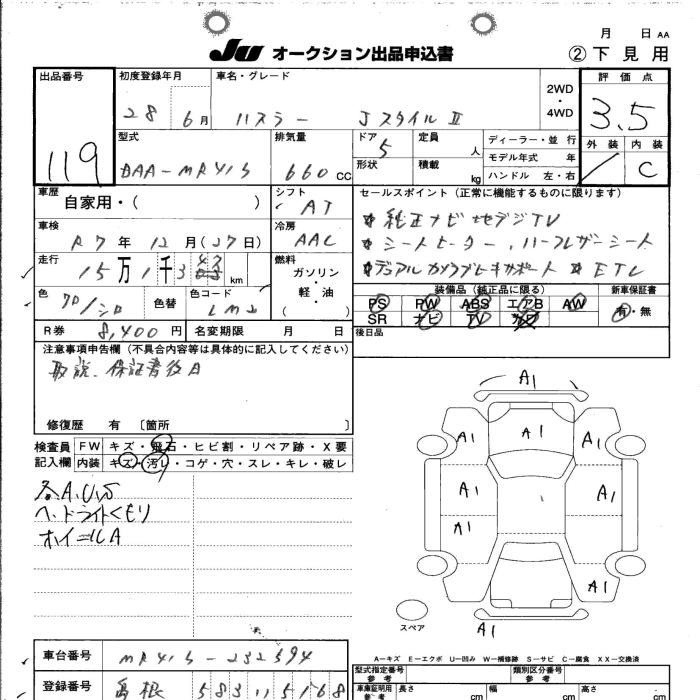 月　日 AA
JU オークション出品申込書 ②下見用
出品番号 119
初度登録年月 28 6月
車名・グレード ハスラー Jスタイル Ⅱ
2WD・4WD
評価点 3.5
外装 内装 C
型式 DAA-MR41S
排気量 660 CC
ドア 5
形状
定員 人
積載 kg
ディーラー・並行
モデル年式 年
ハンドル 左・右
車歴 自家用・( )
シフト AT
セールスポイント(正常に機能するものに限ります)
車検 R7年12月(27日)
冷房 AAC
純正ナビ地デジTV
シートヒーター、ハーフレザーシート
デュアルカメラブレーキサポート ETC
走行 15万1千3 km
燃料 ガソリン・軽油 ( )
色 クロ/シロ
色替
色コード
装備品(純正品に限る)
新車保証書
PS PW ABS エアB AW
SR ナビ TV
有・無
R券 8,400円
名変期限 月 日
後日品
注意事項申告欄(不具合内容等は具体的に記入してください)
取説、保証書後日
修復歴 有 〔箇所 〕
検査員記入欄
FW キズ・飛石・ヒビ割・リペア跡・X要
内装 キズ・汚レ・コゲ・穴・スレ・キレ・破レ
各A.U.S
ヘッドライトくもり
ホイールA
A1
A1 A1 A1
A1 A1
A1
A1
A1
スペア
A…キズ E…エクボ U…凹み W…補修跡 S…サビ C…腐食 XX…交換済
車台番号 MR41S-232594
登録番号 島根 583
型式指定番号 参考
類別区分番号 参考
車庫証明用 参考 長さ cm 幅 cm 高さ cm